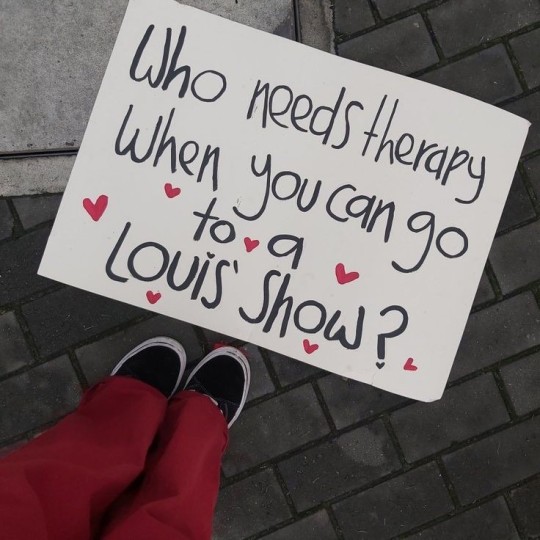 Who needs therapy
When you can go
to a
Louis' Show?